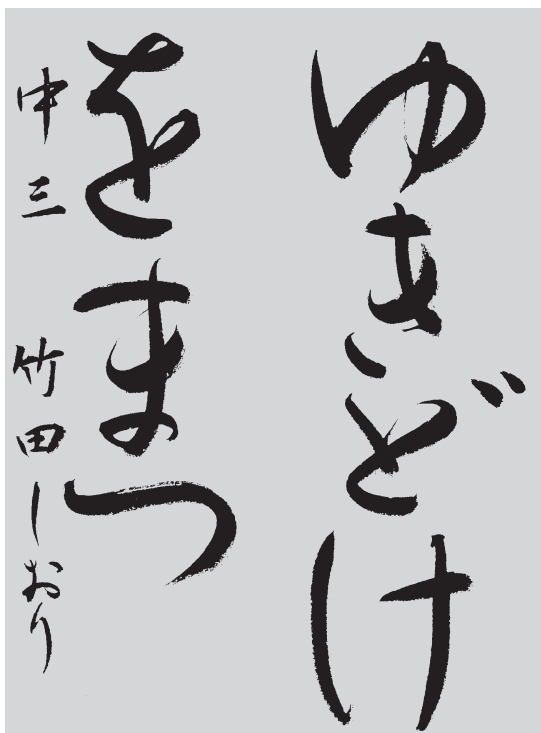 ゆきどけ
をまつ
中三 竹田しおり